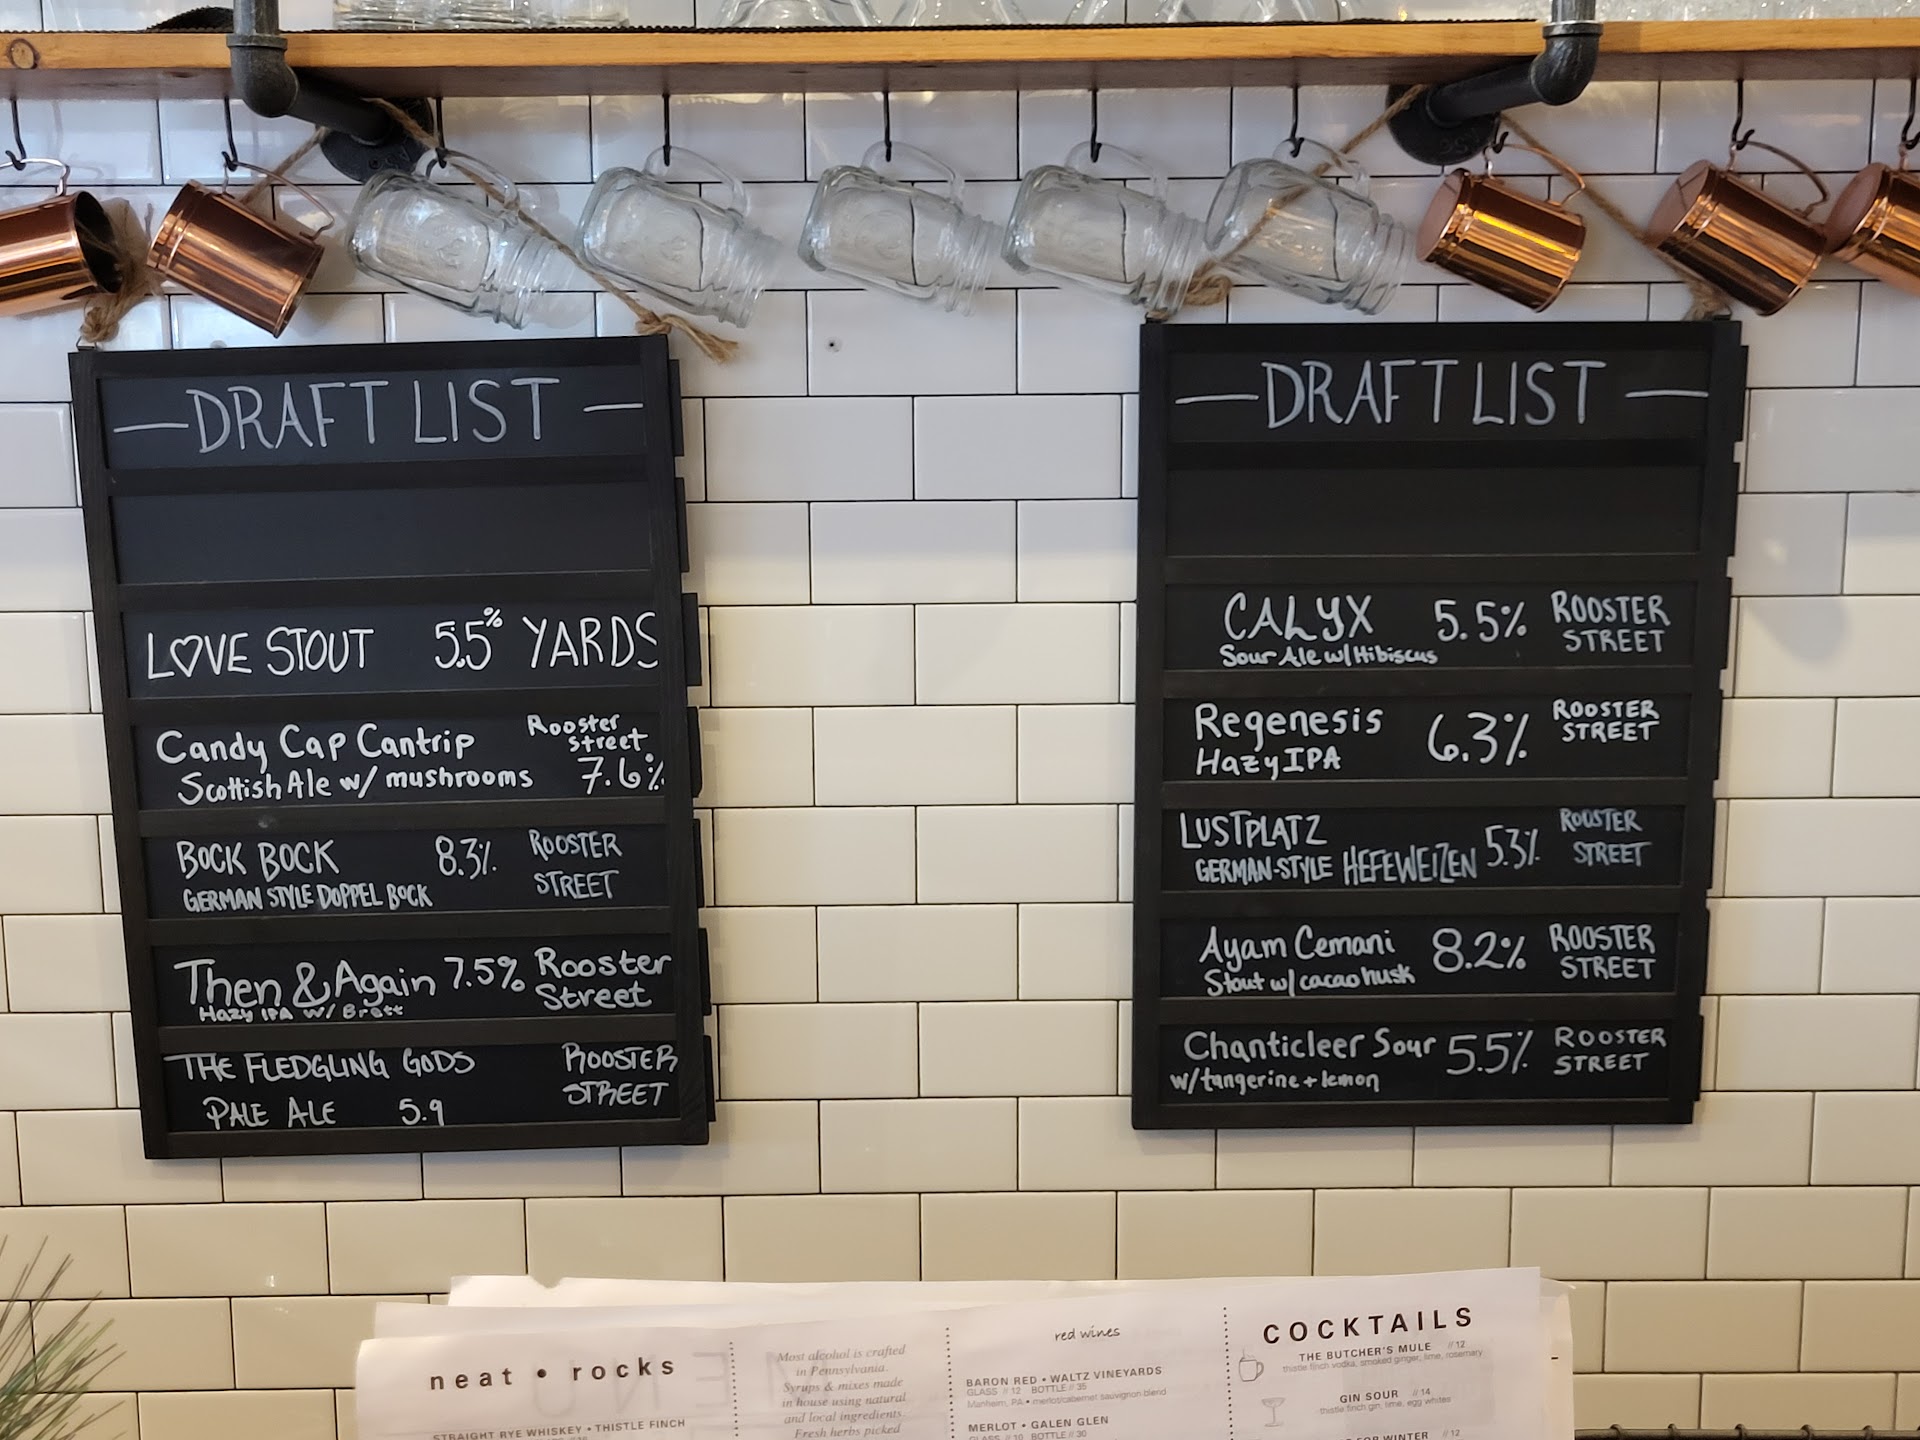 —DRAFT LIST—
LOVE STOUT 5.5% YARDS
Candy Cap Cantrip Rooster Street
Scottish Ale w/ mushrooms 7.6%
BOCK BOCK 8.3% ROOSTER
GERMAN STYLE DOPPEL BOCK STREET
Then & Again 7.5% Rooster
Hazy IPA w/ Brett Street
THE FLEDGLING GODS ROOSTER
PALE ALE 5.9 STREET
—DRAFT LIST—
CALYX 5.5% ROOSTER
Sour Ale w/ Hibiscus STREET
Regenesis 6.3% ROOSTER
Hazy IPA STREET
LUSTPLATZ 5.3% ROOSTER
GERMAN-STYLE HEFEWEIZEN STREET
Ayam Cemani 8.2% ROOSTER
Stout w/ cacao husk STREET
Chanticleer Sour 5.5% ROOSTER
w/ tangerine + lemon STREET
neat • rocks
STRAIGHT RYE WHISKEY • THISTLE FINCH
Most alcohol is crafted
in Pennsylvania.
Syrups & mixes made
in house using natural
and local ingredients.
Fresh herbs picked
red wines
BARON RED • WALTZ VINEYARDS
GLASS // 12 BOTTLE // 35
Manheim, PA • merlot/cabernet sauvignon blend
MERLOT • GALEN GLEN
GLASS // 10 BOTTLE // 30
COCKTAILS
THE BUTCHER'S MULE // 12
thistle finch vodka, smoked ginger, lime, rosemary
GIN SOUR // 14
thistle finch gin, lime, egg whites
FOR WINTER // 12